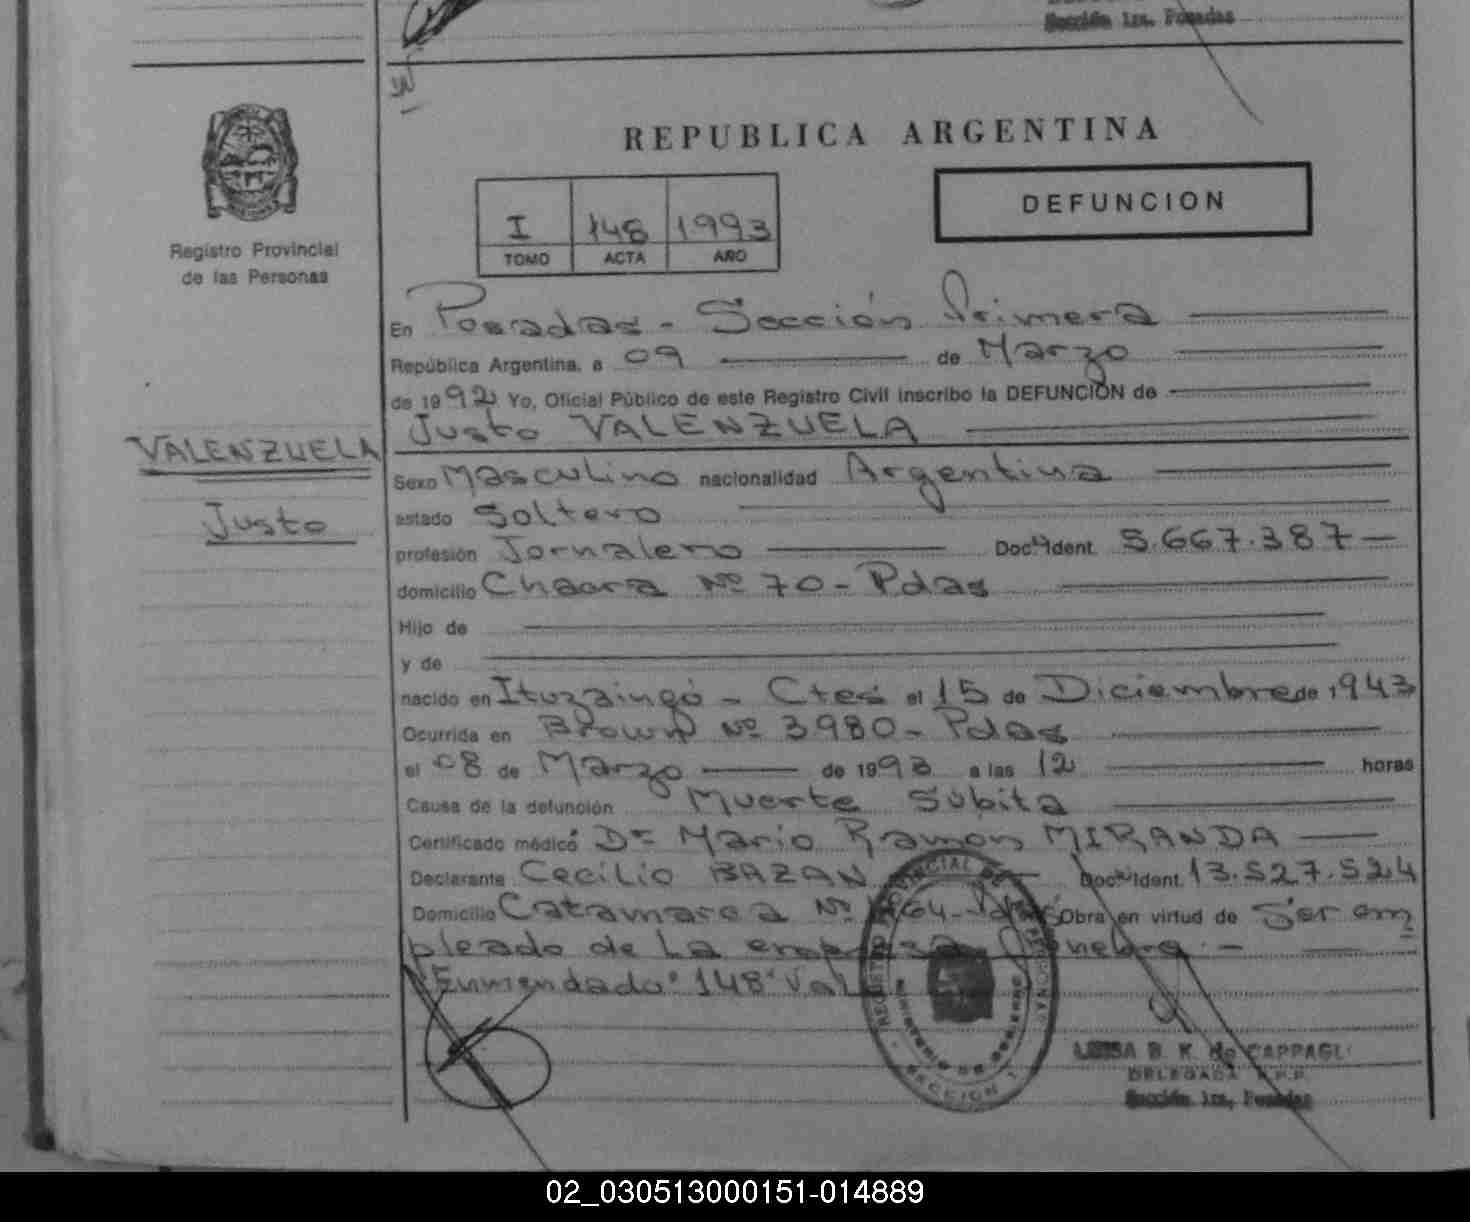 Sección 1ra. Posadas
REPUBLICA ARGENTINA
DEFUNCION
I 148 1993
TOMO ACTA AÑO
Registro Provincial
de las Personas
En Posadas - Sección Primera
República Argentina, a 09 de Marzo
de 1992 Yo, Oficial Público de este Registro Civil inscribo la DEFUNCIÓN de
Justo VALENZUELA
VALENZUELA
Justo
Sexo Masculino nacionalidad Argentina
estado Soltero
profesión Jornalero Doc. Ident. 5.667.387
domicilio Chacra Nº 70 - Pdas
Hijo de
y de
nacido en Ituzaingó - Ctes el 15 de Diciembre de 1943
Ocurrida en Brown Nº 3980 - Pdas
el 08 de Marzo de 1993 a las 12 horas
Causa de la defunción Muerte Súbita
Certificado médico Dr Mario Ramon MIRANDA
Declarante Cecilio BAZAN Doc. Ident. 13.527.524
Domicilio Catamarca Nº Obra en virtud de Ser em
pleado de La empresa
Enmendado "148" Vale
REGISTRO PROVINCIAL DE LAS PERSONAS
MINISTERIO DE GOBIERNO
SECCION 1
B. K. de CAPPAGLI
DELEGADA R.P.P.
Sección 1ra, Posadas
02_030513000151-014889